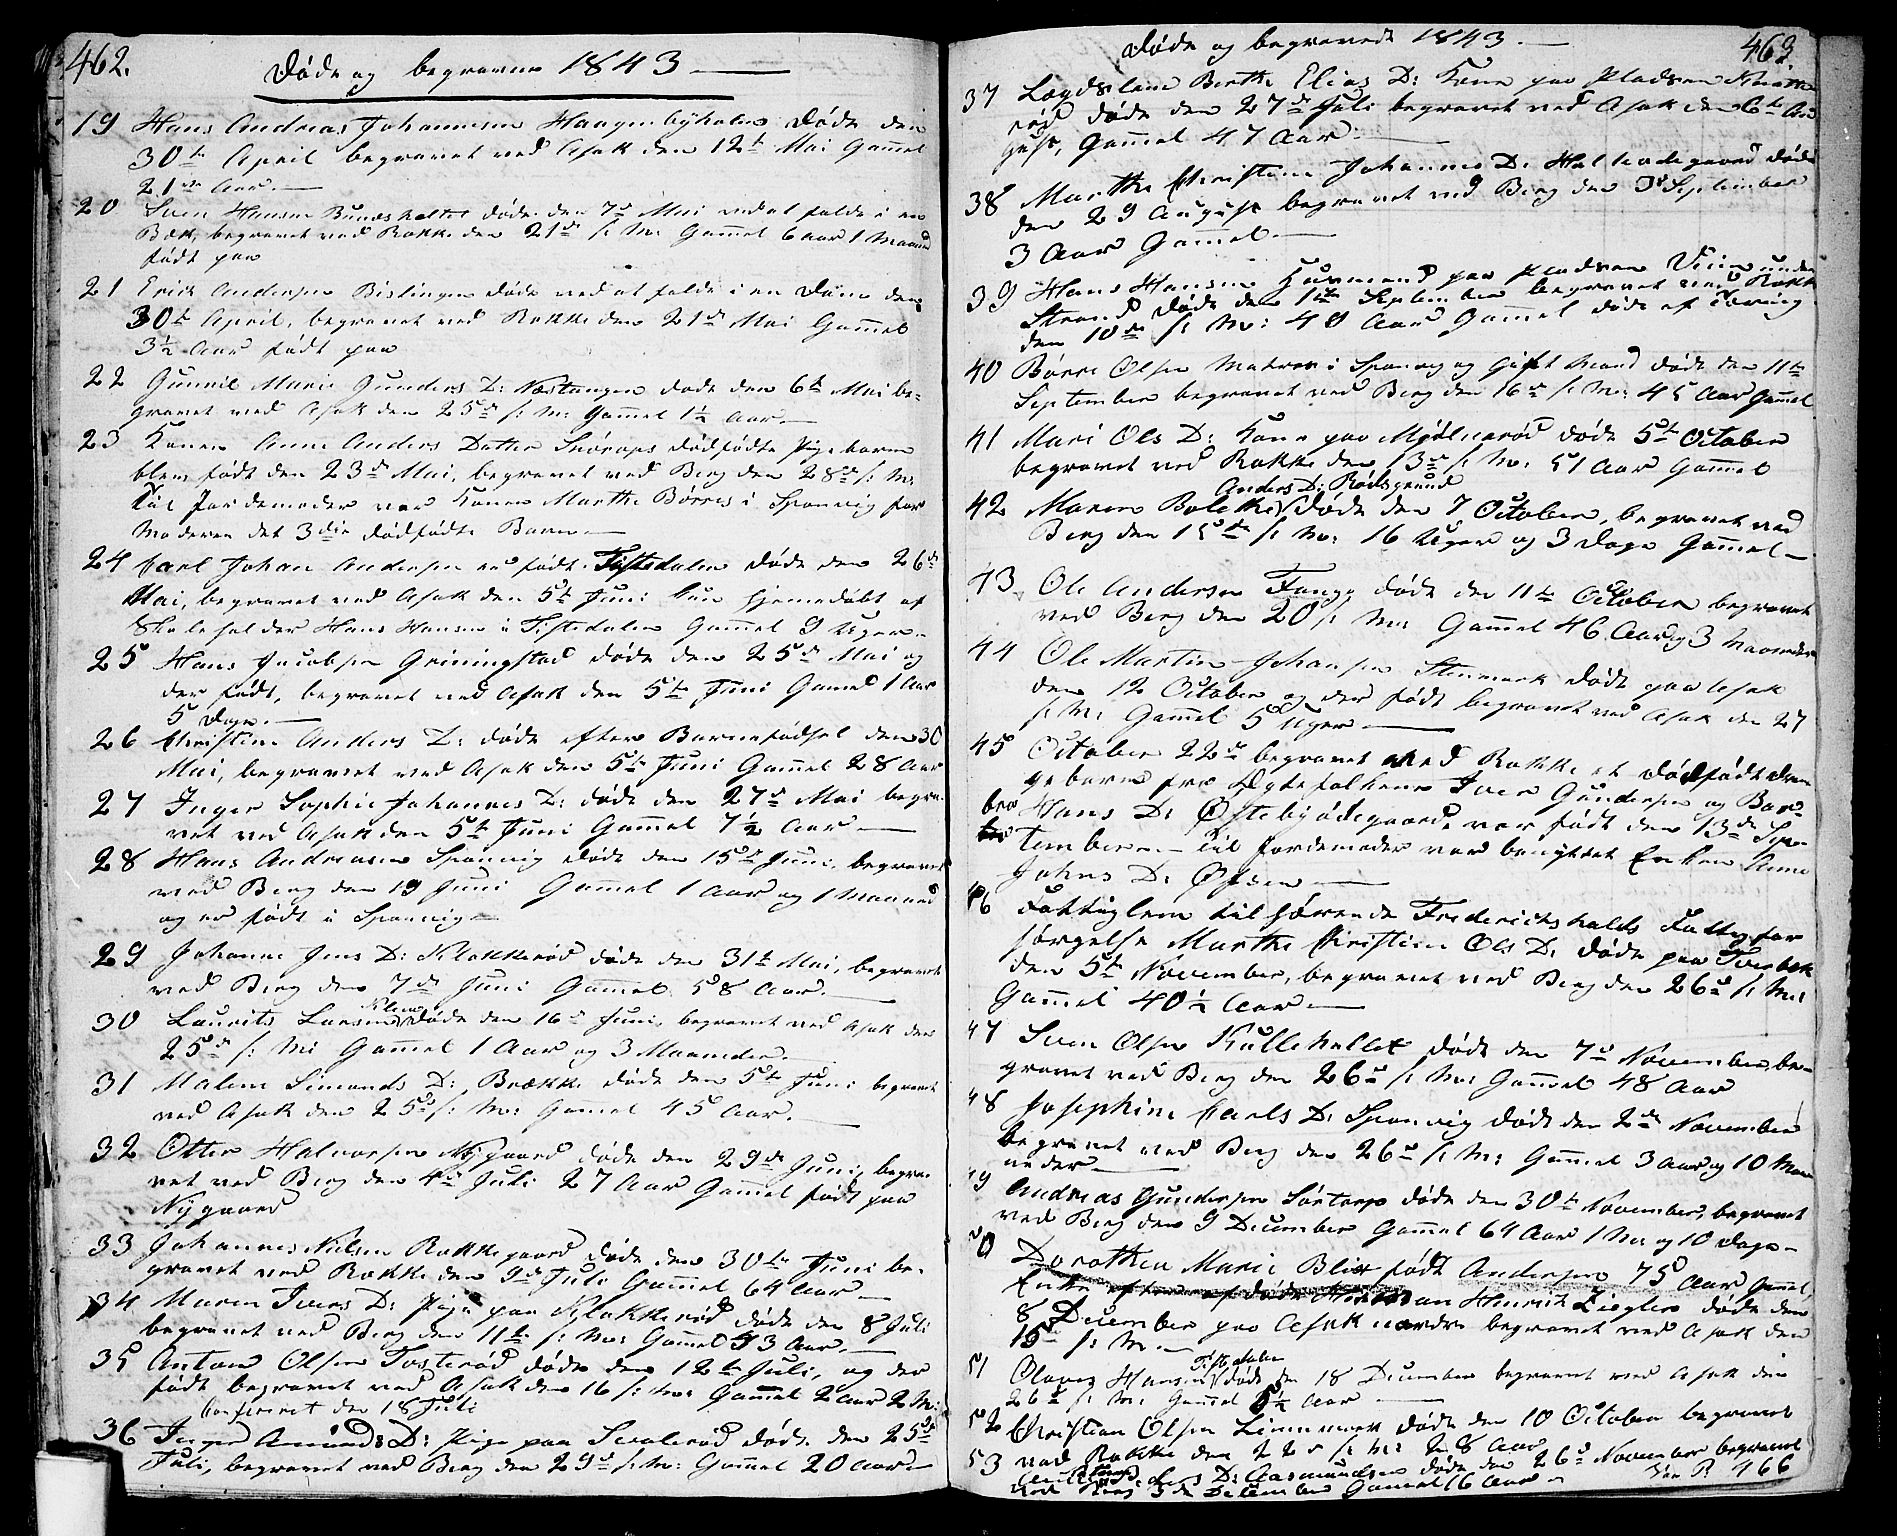 462.
Døde og begravne 1843
19 Hans Andreas Johannesen Haagenbyholen døde den
30te April begravet ved Asak den 12te Mai Gammel
21de Aar.
20 Sven Hansen døde den 7de Mai ved at falde i en
Bæk, begravet ved Rokke den 21de s: M: Gammel 6 Aar 1 Maaned
født paa
21 Erick Andersen Bislingen døde ved at falde i en Dam den
30te April, begravet ved Rokke den 21de Mai Gammel
3½ Aar født paa
22 Gunnil Marie Gunders D: Næstangen døde den 6te Mai be=
gravet ved Asak den 25de s: M: Gammel 1½ Aar.
23 Konen Anne Anders Datter Sørops dødfødte Pigebarn
blev født den 23de Mai, begravet ved Berg den 28de s: M:
til Jordemoder var Konen Marthe Børres i Sponvig for
Moderen det 3die dødfødte Barn
24 Carl Johan Andersen født Tistedalen døde den 26de
Mai, begravet ved Asak den 5te Juni hjemedøbt af
Skoleholder Hans Hansen i Tistedalen Gammel 9 Uger.
25 Hans Jacobsen Griningstad døde den 25de Mai og
der født, begravet ved Asak den 5te Juni Gamel 1 Aar
5 Dage.
26 Christine Anders D: døde efter Barnefødsel den 30
Mai, begravet ved Asak den 5te Juni Gammel 28 Aar
27 Inger Sophie Johannes D: døde den 27de Mai begra=
vet ved Asak den 5te Juni Gammel 7½ Aar
28 Hans Andreasen Sponvig døde den 15de Juni, begravet
ved Berg den 19 Juni Gammel 1 Aar og 1 Maaned
og er født i Sponvig
29 Johanne Jens D: Klokkerød døde den 31te Mai, begravet
ved Berg den 7de Juni Gammel 58 Aar.
30 Laurits Larsen døde den 16de Juni, begravet ved Asak den
25de s: M: Gammel 1 Aar og 3 Maaneder.
31 Malene Simonds D: Brække døde den 5te Juni begravet
ved Asak den 25de s: M: Gammel 45 Aar.
32 Otter Halvorsen Nygaard døde den 29de Juni, begra=
vet ved Berg den 4de Juli 27 Aar Gammel født paa
Nygaard
33 Johannes Nilsen Rokkegaard døde den 30te Juni be=
gravet ved Rokke den 9de Juli Gammel 64 Aar
34 Maren Ivers D: Pige paa Klokkerød døde den 8 Juli
begravet ved Berg den 11te s: M: Gammel 53 Aar.
35 Anton Olsen Tosterød døde den 12te Juli, og der
født begravet ved Asak den 16 s: M: Gammel 2 Aar 2 M:
Confereret den 18 Juli
36 Inger Amunds D: Pige paa døde den 25de
Juli, begravet ved Berg den 29de s: M: Gammel 20 Aar
Døde og begravede 1843
463
37 Lægdslem Berthe Elias D: Kone paa Pladsen
rød døde den 27de Juli begravet ved Asak den 6te Au
gust, Gammel 47 Aar
38 Marthe Christine Johannes D: døde
den 29 August begravet ved Berg den 3 September
3 Aar Gammel
39 Hans Hansen Huusmand paa Pladsen Veien under
Strand døde den 1te September begravet ved Rokke
den 10de s: M: 40 Aar Gammel døde af Tæring
40 Børre Olsen i Sponvig og Gift Mand døde den 11te
September begravet ved Berg den 16de s: M: 45 Aar Gamel
41 Mari Ols D: Kone paa Mjølnerød døde 5te October
begravet ved Rokke den 13de s: M: 51 Aar Gammel
Anders D: Rødsgrund
42 Maren Bolethe døde den 7 October, begravet ved
Berg den 15de s: M: 16 Uger og 3 Dage Gammel
43 Ole Andersen Fange døde den 11te October begravet
ved Berg den 20 s: M: Gammel 46 Aar og 3 Maaneder
44 Ole Martin Johansen Stenmark døde paa Asak
den 12 October og der født begravet ved Asak den 27
s: M: Gammel 5 Uger
45 October 22de begravet ved Rokke et dødfødt Dren
gebarn fra Ægtefolkene Iver Gundersen og Bar=
bra Hans D: Østebyødegaard, var født den 13de Sep=
temberen. Til Jordemoder var benyttet Enken Anne
Johns D: Øsen
46 Fattiglem tilhørende Fredrichshalds Fattigfor
sørgelse Marthe Christine Ols D: døde paa
den 5te November, begravet ved Berg den 26de s: M:
Gammel 40½ Aar
47 Sven Olsen Kullehullet døde den 7de November be=
gravet ved Berg den 26de s: M: Gammel 48 Aar
48 Josephine Carls D: Sponvig døde den 2de November
begravet ved Berg den 26de s: M: Gammel 3 Aar og 10 Maa
neder
49 Andreas Gundersen Sørtorp døde den 30te November, begravet
ved Berg den 9 December Gammel 64 Aar 1 M: og 10 Dage
50 Dorothea Marie Blix født Andersen 75 Aar Gamel,
Enke efter afdøde Herman Henrich Ziegler døde den
8 December paa Asak nordre begravet ved Asak den
15de s: M:
Tistedalen
51 Olaves Hansen døde den 18 December begravet ved Asak den
26de s: M: Gammel 5½ Aar
52 Christian Olsen døde den 10 October begravet
ved Rokke den 22de s: M: 28 Aar
53 D: Aasmundsen døde den 26de November begravet
ved Berg 3de December Gammel 16 Aar Vide P. 466